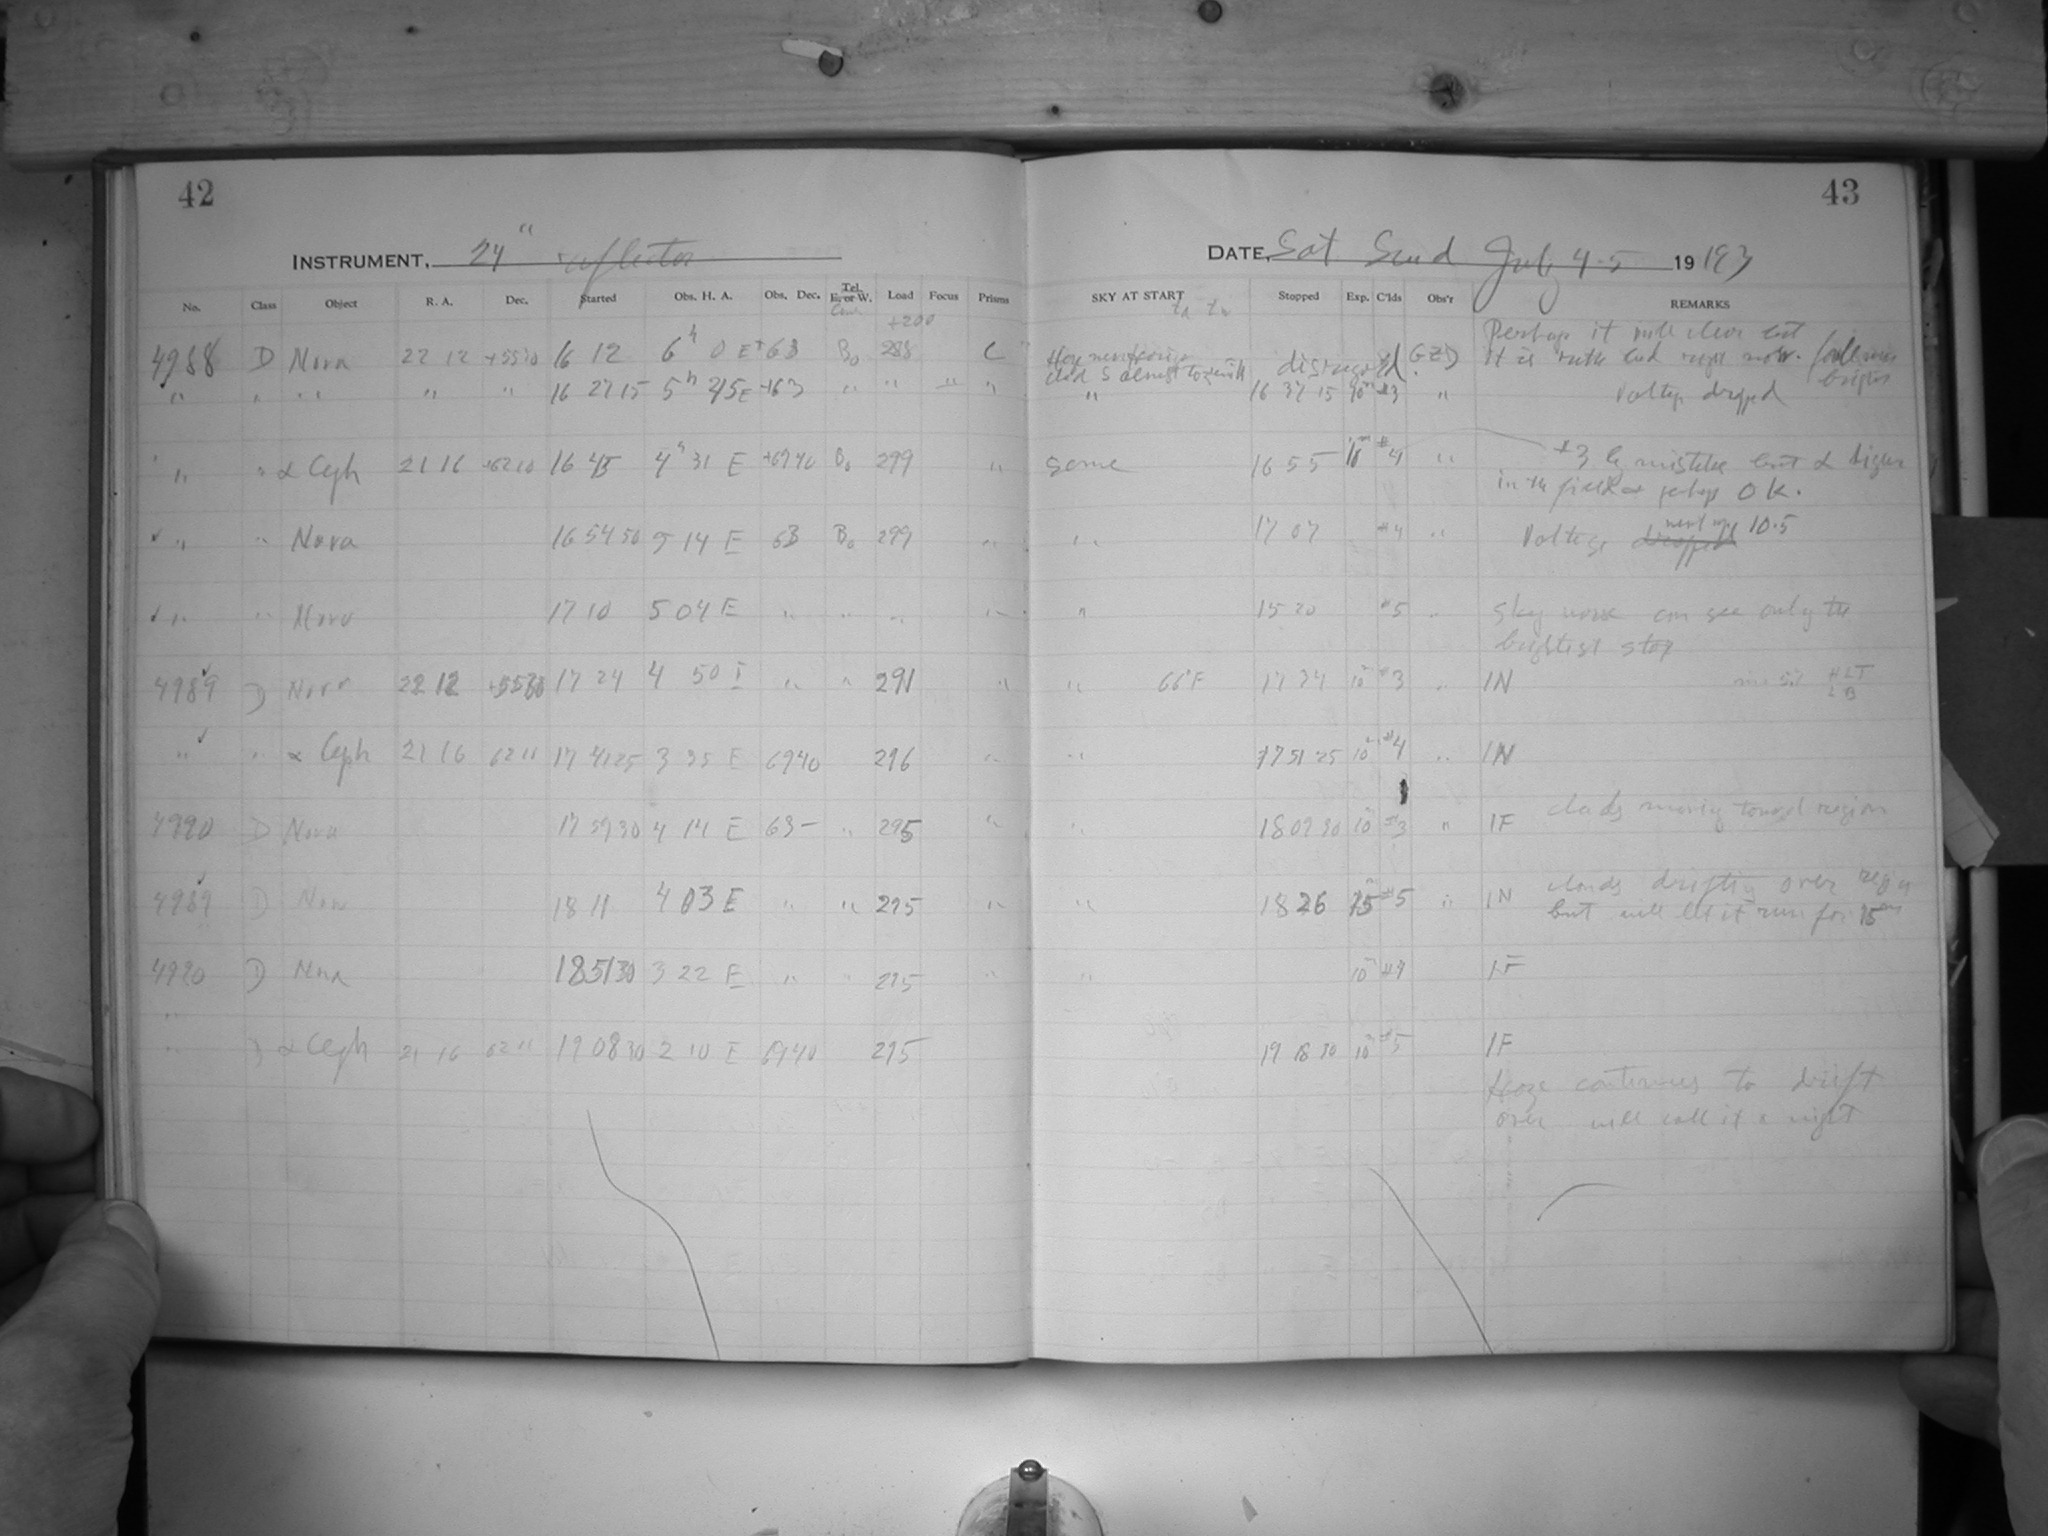 42
43
INSTRUMENT, 24" reflector
DATE, Sat Sund July 4-5 19
No. Class Object R. A. Dec. Started Obs. H. A. Obs. Dec. Tel. E. or W. Load Focus Prisms
SKY AT START Stopped Exp. C'lds Obs'r REMARKS
+200
Perhaps it will clear but
4988 D Nova 22 12 +5530 16 12 6h 0 E +63 B0 288 C it is right now.
" " " " " 16 27 15 5h 45 E +63 " " " " " 16 37 15 10m #3 " Voltage dropped
" " α Ceph 21 16 +6210 16 45 4h 31 E +6940 B0 299 " same 16 55 10m #4 " #3 by mistake but α higher
in the field & perhaps OK.
" " Nova 16 54 50 5 14 E 63 B0 299 " " 17 07 #4 " Voltage dropped went up 10.5
" " Nova 17 10 5 04 E " " " " " 15 20 #5 " Sky worse can see only the
brightest star
4989 D Nova 22 12 +5530 17 24 4 50 E " " 291 " " 66°F 17 34 10m #3 " IN
" " α Ceph 21 16 6211 17 41 25 3 35 E 6940 296 " " 17 51 25 10m #4 " IN
4990 D Nova 17 59 30 4 14 E 63- " 295 " " 18 09 30 10m #3 " IF clouds moving toward region
4989 D Nova 18 11 4 03 E " " 295 " " 18 26 15m #5 " IN clouds drifting over region
but will let it run for 15m
4990 D Nova 18 51 30 3 22 E " " 295 " " 10m #4 IF
" D α Ceph 21 16 6211 19 08 30 2 10 E 6940 295 19 18 30 10m #5 IF
Haze continues to drift
over will call it a night